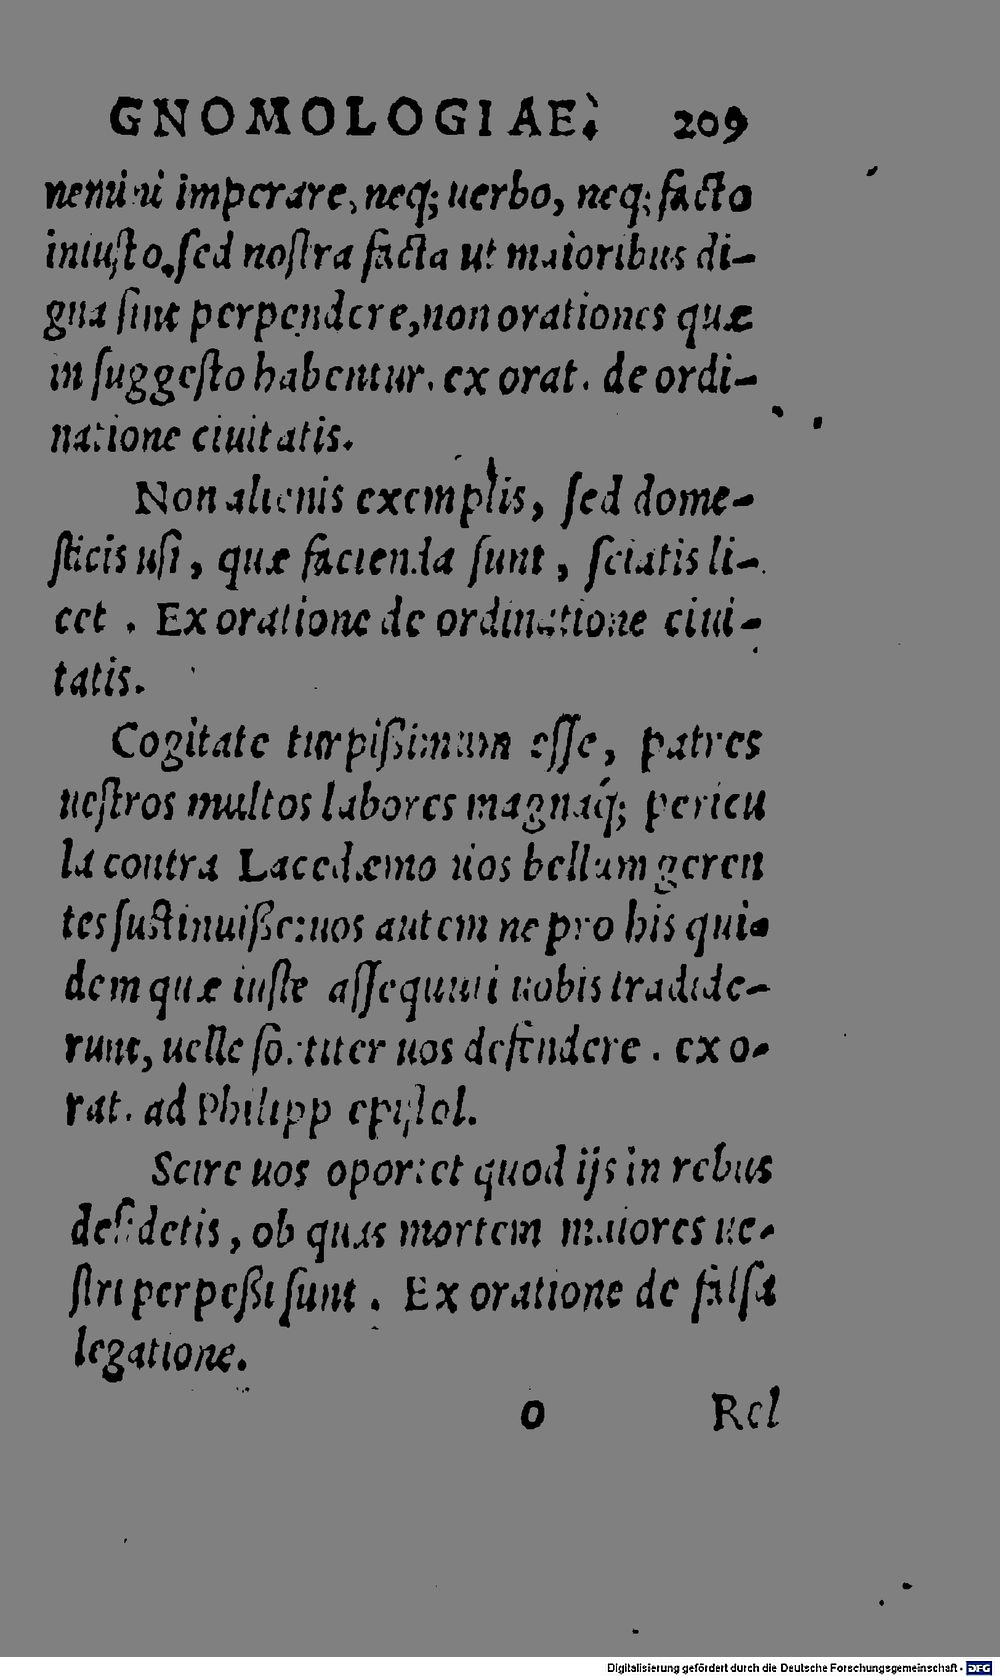 GNOMOLOGIAE. 209
nemini imperare, neq; uerbo, neq; facto
iniusto, sed nostra facta ut maioribus di-
gna sint perpendere, non orationes quæ
in suggesto habentur. ex orat. de ordi-
natione ciuitatis.
Non alienis exemplis, sed dome-
sticis usi, quæ facienda sunt, sciatis li-
cet. Ex oratione de ordinatione ciui-
tatis.
Cogitate turpißimum esse, patres
uestros multos labores magnaq́; pericu
la contra Lacedæmonios bellum geren
tes sustinuiße: uos autem ne pro his qui-
dem quæ iuste assequuti uobis tradide-
runt, uelle fortiter uos defendere. ex o-
rat. ad Philipp epistol.
Scire uos oportet quod ijs in rebus
desidetis, ob quas mortem maiores ue-
stri perpeßi sunt. Ex oratione de falsa
legatione.
o Rel
Digitalisierung gefördert durch die Deutsche Forschungsgemeinschaft - DFG